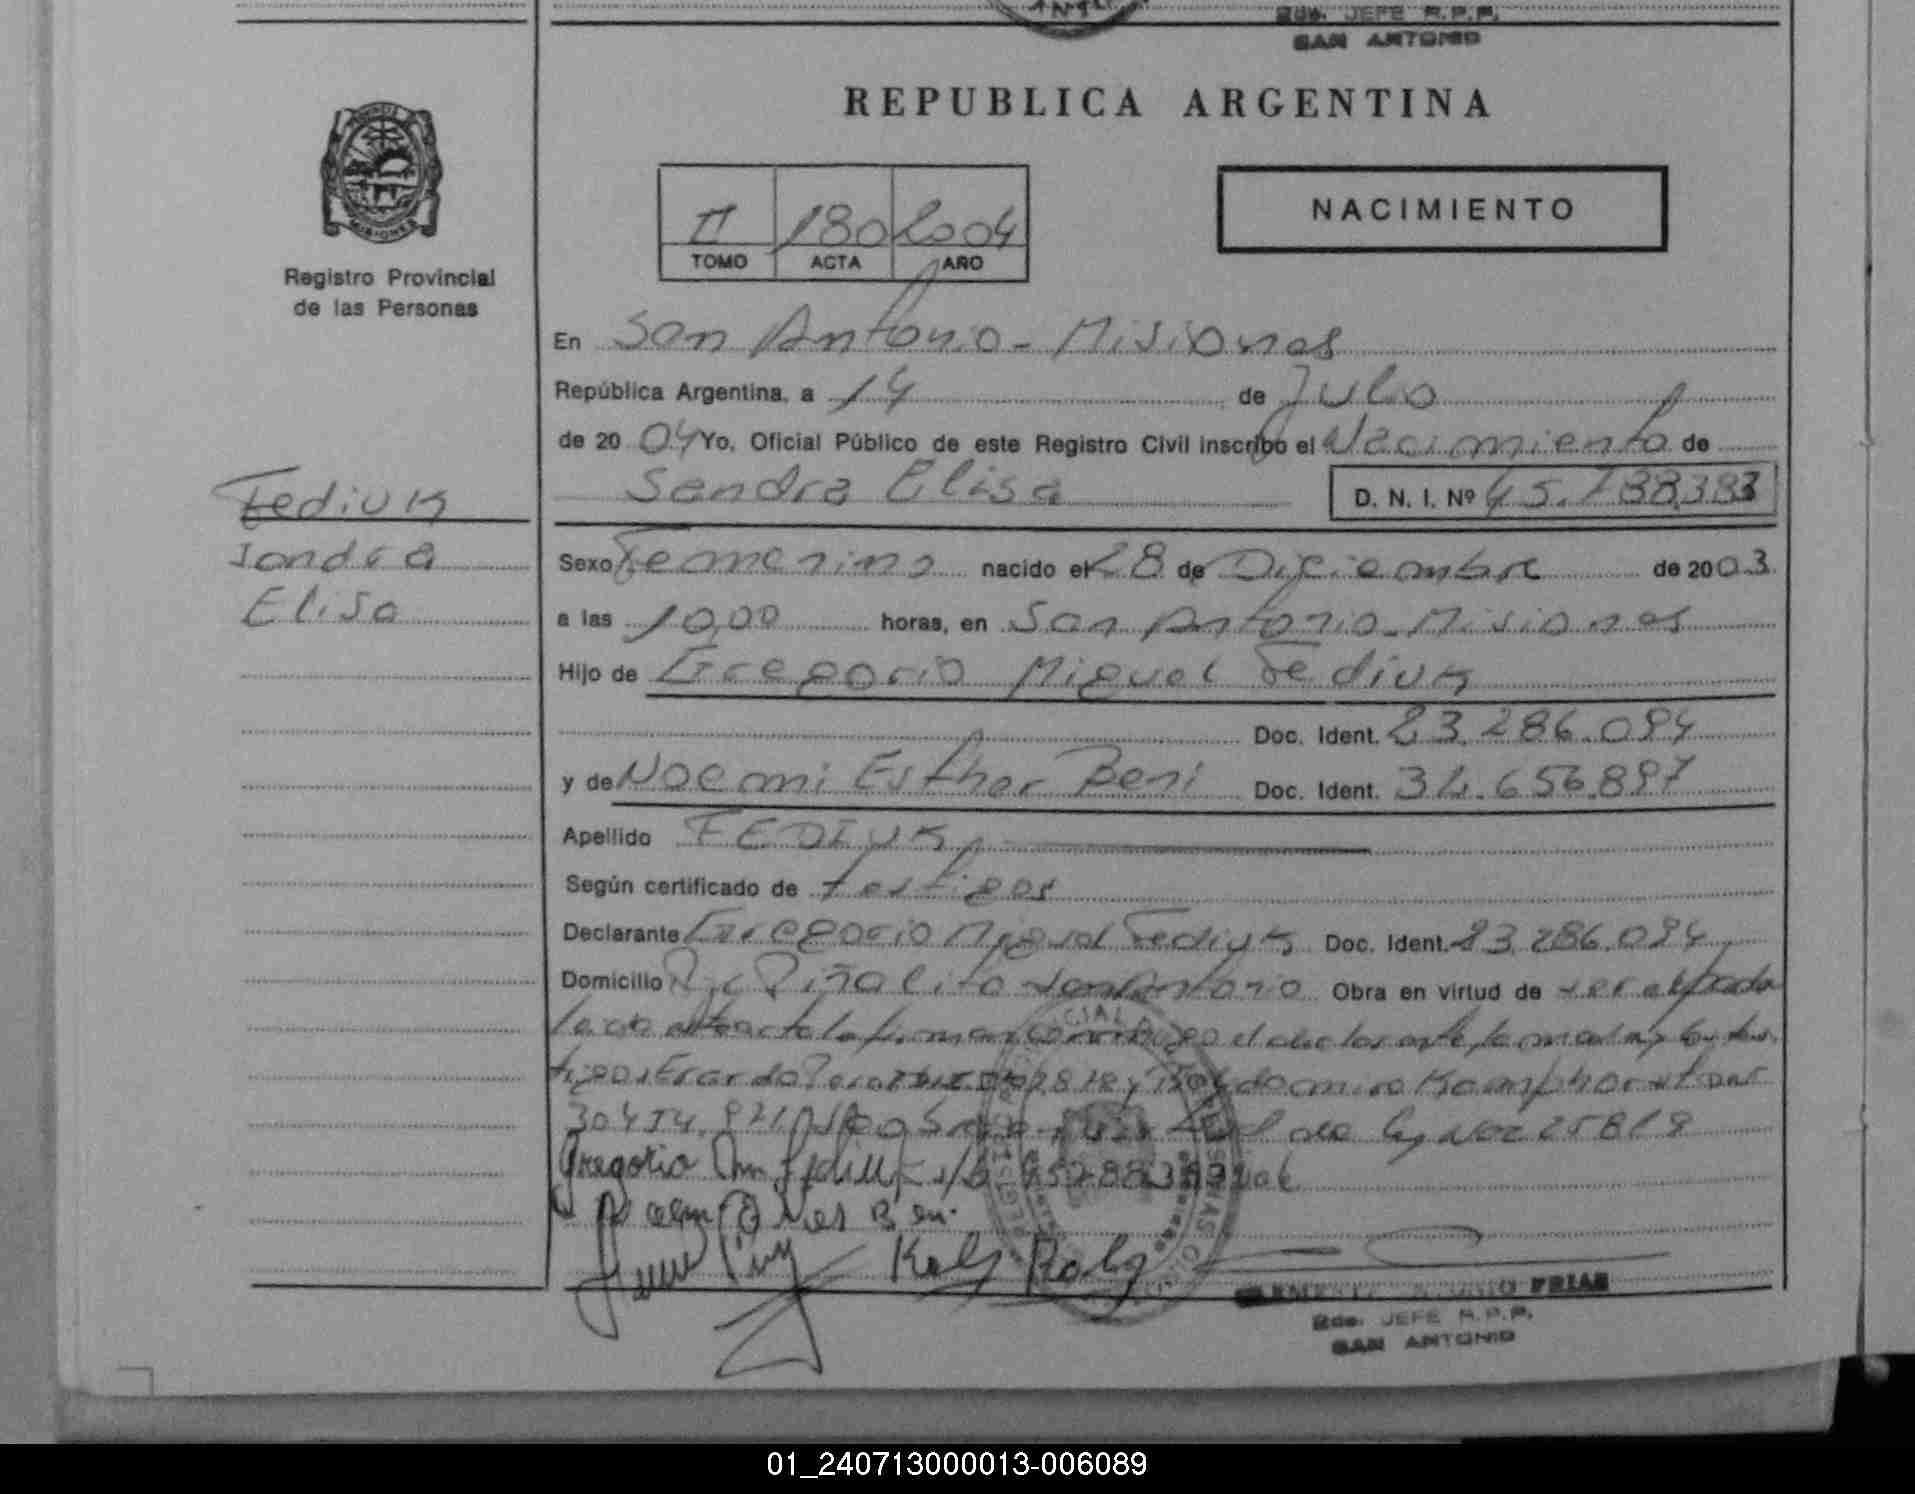 Rdo. JEFE R.P.P.
SAN ANTONIO
REPUBLICA ARGENTINA
MISIONES
Registro Provincial
de las Personas
II 180 2004
TOMO ACTA AÑO
NACIMIENTO
En San Antonio - Misiones
República Argentina, a 14 de Julio
de 2004 Yo, Oficial Público de este Registro Civil inscribo el Nacimiento de
Sandra Elisa D. N. I. Nº 45.788.383
Fediuk
Sandra
Elisa
Sexo Femenino nacido el 28 de Diciembre de 2003
a las 10,00 horas, en San Antonio - Misiones
Hijo de Gregorio Miguel Fediuk
Doc. Ident. 23.286.094
y de Noemi Esther Beni Doc. Ident. 34.656.897
Apellido FEDIUK
Según certificado de testigos
Declarante Gregorio Miguel Fediuk Doc. Ident. 23.286.094
Domicilio Piñalito San Antonio Obra en virtud de
la firman el declarante la madre y
y
30454.871 de Ley Nº 25819
Gregorio M Fediuk
Noemi Beni
FRIAS
Rdo. JEFE R.P.P.
SAN ANTONIO
01_240713000013-006089